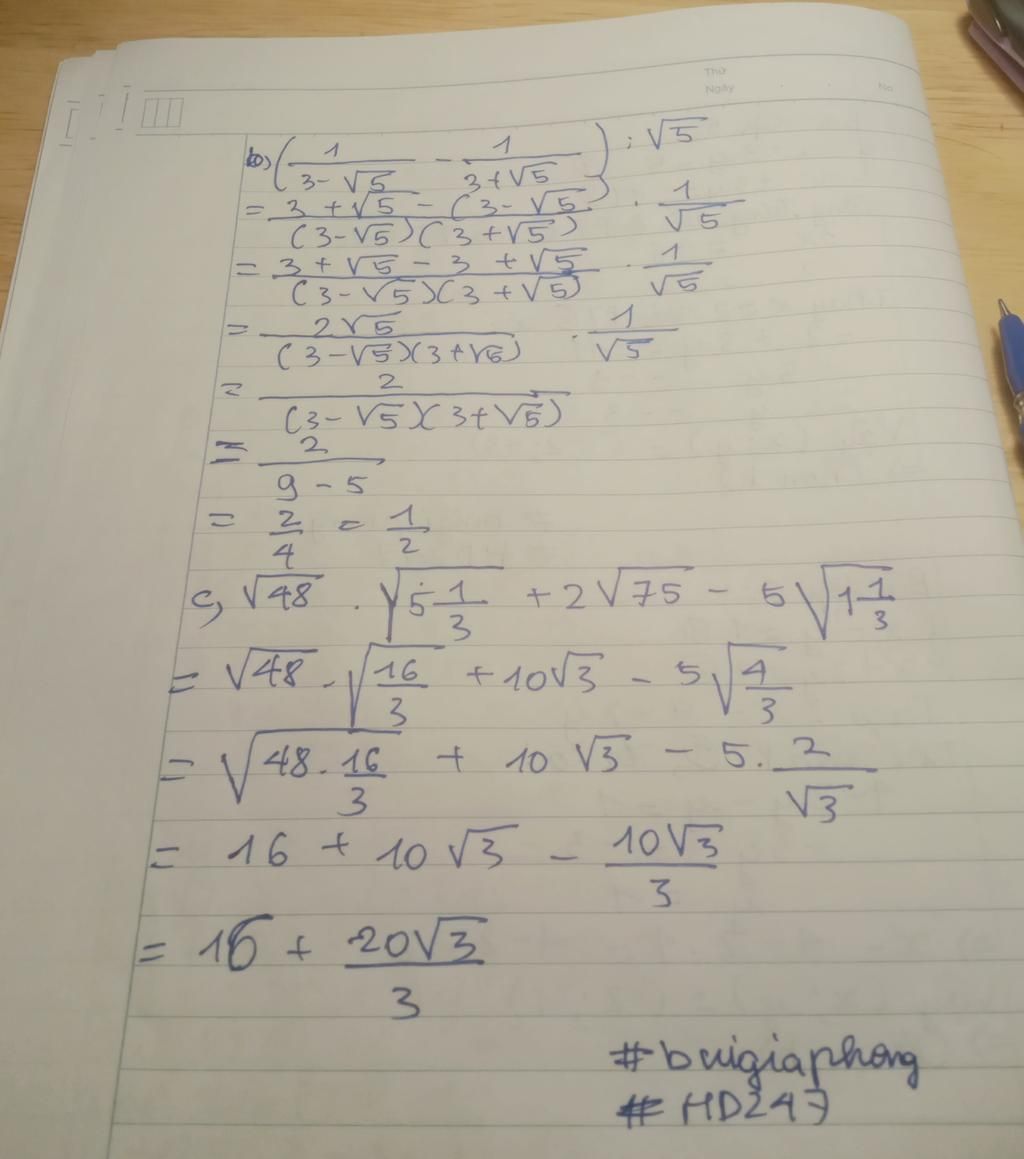 Thứ
Ngày No
b) (1/(3-√5) - 1/(3+√5)) : √5
= (3+√5 - (3-√5))/((3-√5)(3+√5)) . 1/√5
= (3+√5 - 3 + √5)/((3-√5)(3+√5)) . 1/√5
= 2√5/((3-√5)(3+√5)) . 1/√5
= 2/((3-√5)(3+√5))
= 2/(9-5)
= 2/4 = 1/2
c, √48 . √(5 1/3) + 2√75 - 5√(1 1/3)
= √48 . √(16/3) + 10√3 - 5√(4/3)
= √(48 . 16/3) + 10√3 - 5. 2/√3
= 16 + 10√3 - 10√3/3
= 16 + 20√3/3
#buigiaphong
#HD247